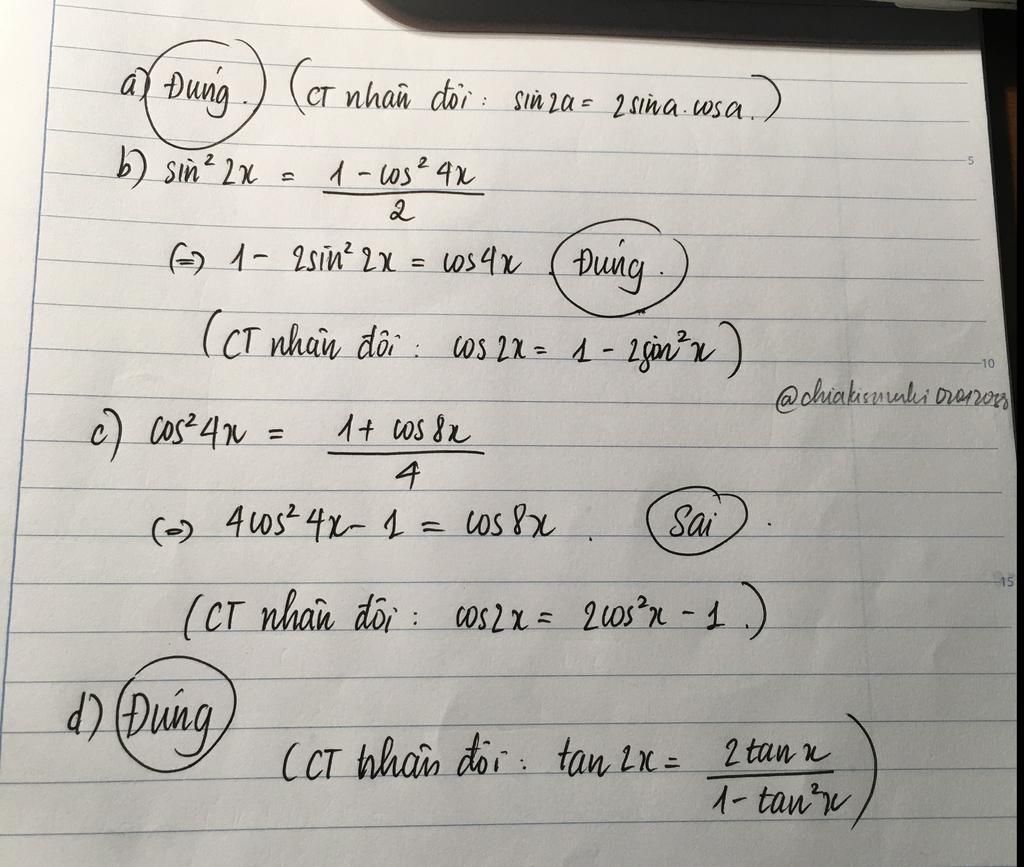 a) Đúng. (CT nhân đôi: sin2a = 2sina.cosa.)
b) sin² 2x = (1 - cos² 4x)/2
(=) 1 - 2sin² 2x = cos4x. Đúng.
(CT nhân đôi: cos 2x = 1 - 2sin²x)
c) cos²4x = (1 + cos 8x)/4
(=) 4cos² 4x - 1 = cos 8x. Sai.
(CT nhân đôi: cos2x = 2cos²x - 1.)
d) Đúng
(CT nhân đôi: tan 2x = (2 tan x)/(1 - tan²x))
5
10
15